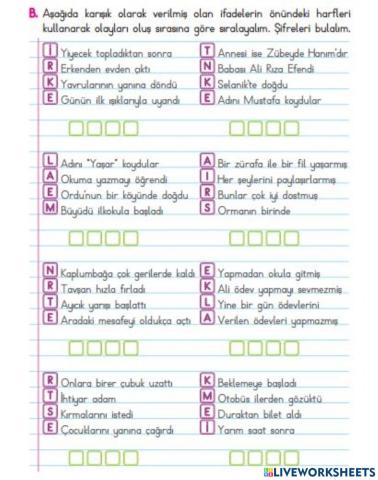 B. Aşağıda karışık olarak verilmiş olan ifadelerin önündeki harfleri
kullanarak olayları oluş sırasına göre sıralayalım. Şifreleri bulalım.
İ Yiyecek topladıktan sonra
R Erkenden evden çıktı
K Yavrularının yanına döndü
E Günün ilk ışıklarıyla uyandı
T Annesi ise Zübeyde Hanım'dır
N Babası Ali Rıza Efendi
K Selanik'te doğdu
E Adını Mustafa koydular
L Adını "Yaşar" koydular
A Okuma yazmayı öğrendi
E Ordu'nun bir köyünde doğdu
M Büyüdü ilkokula başladı
A Bir zürafa ile bir fil yaşarmış
I Her şeylerini paylaşırlarmış
R Bunlar çok iyi dostmuş
S Ormanın birinde
N Kaplumbağa çok gerilerde kaldı
R Tavşan hızla fırladı
T Ayıcık yarışı başlattı
E Aradaki mesafeyi oldukça açtı
E Yapmadan okula gitmiş
K Ali ödev yapmayı sevmezmiş
L Yine bir gün ödevlerini
A Verilen ödevleri yapmazmış
R Onlara birer çubuk uzattı
T İhtiyar adam
S Kırmalarını istedi
E Çocuklarını yanına çağırdı
K Beklemeye başladı
M Otobüs ilerden gözüktü
E Duraktan bilet aldı
İ Yarım saat sonra
LIVEWORKSHEETS